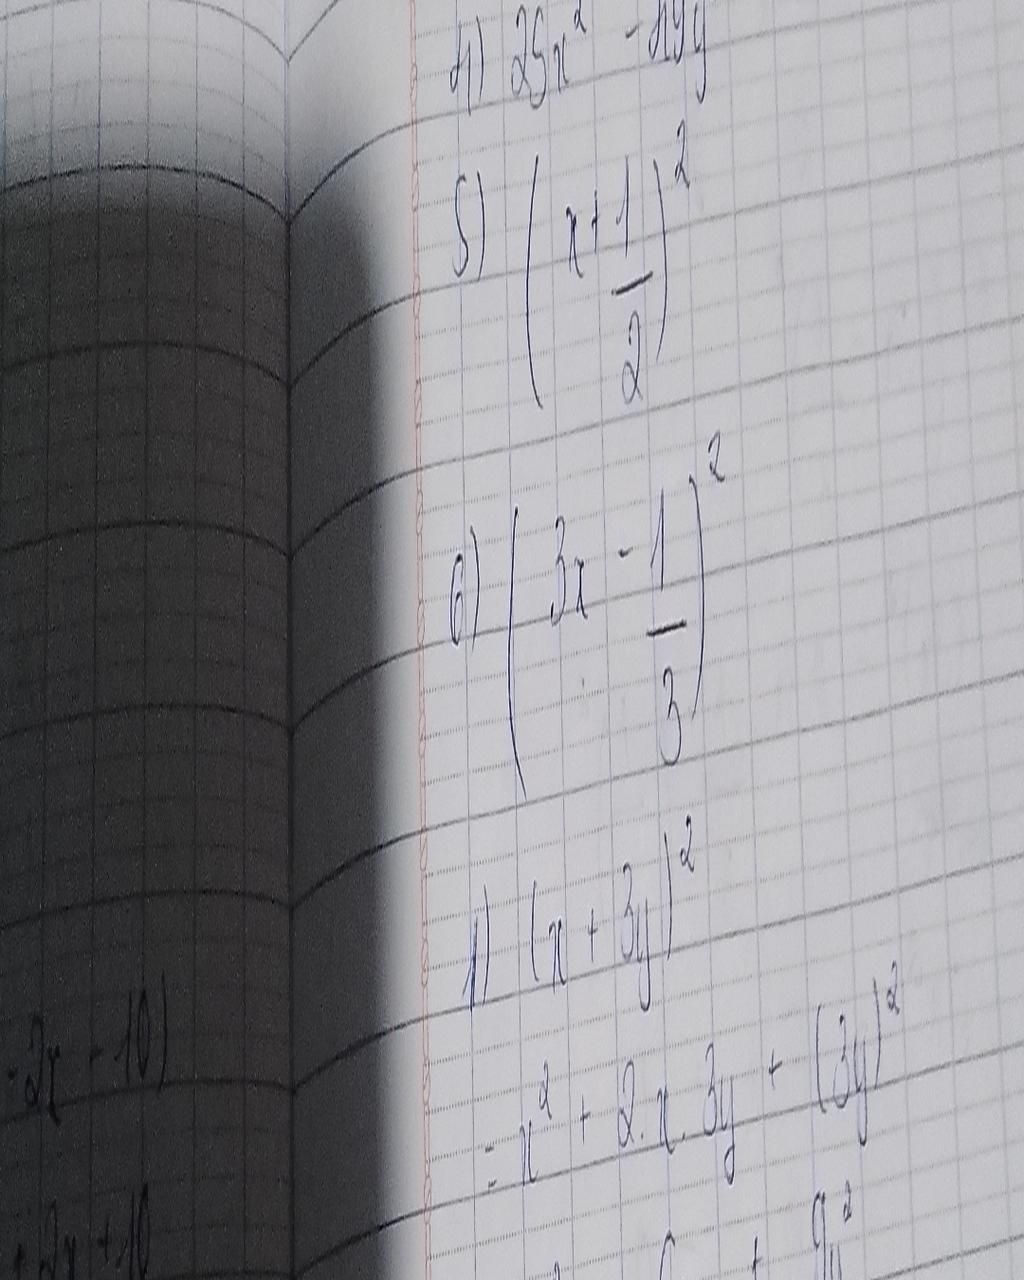 4) 25x² -
5) (x + 1/2)²
6) (3x - 1/3)²
1) (x + 3y)²
= x² + 2.x.3y + (3y)²
+ 9y²
- 2x - 10)
+ 2x + 10